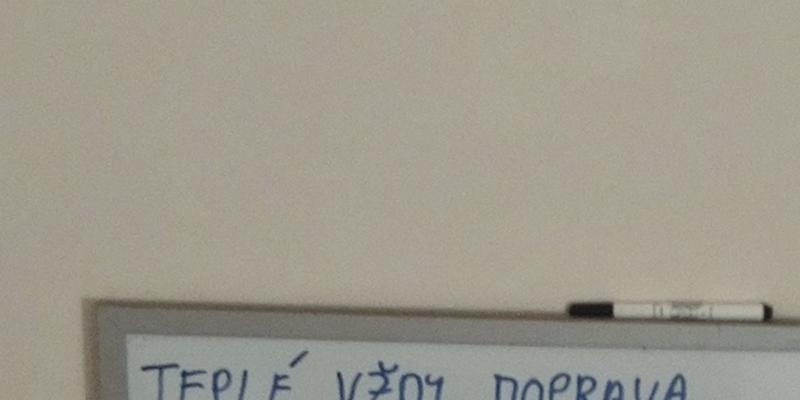 TEPLÉ VŽDY DOPRAVA